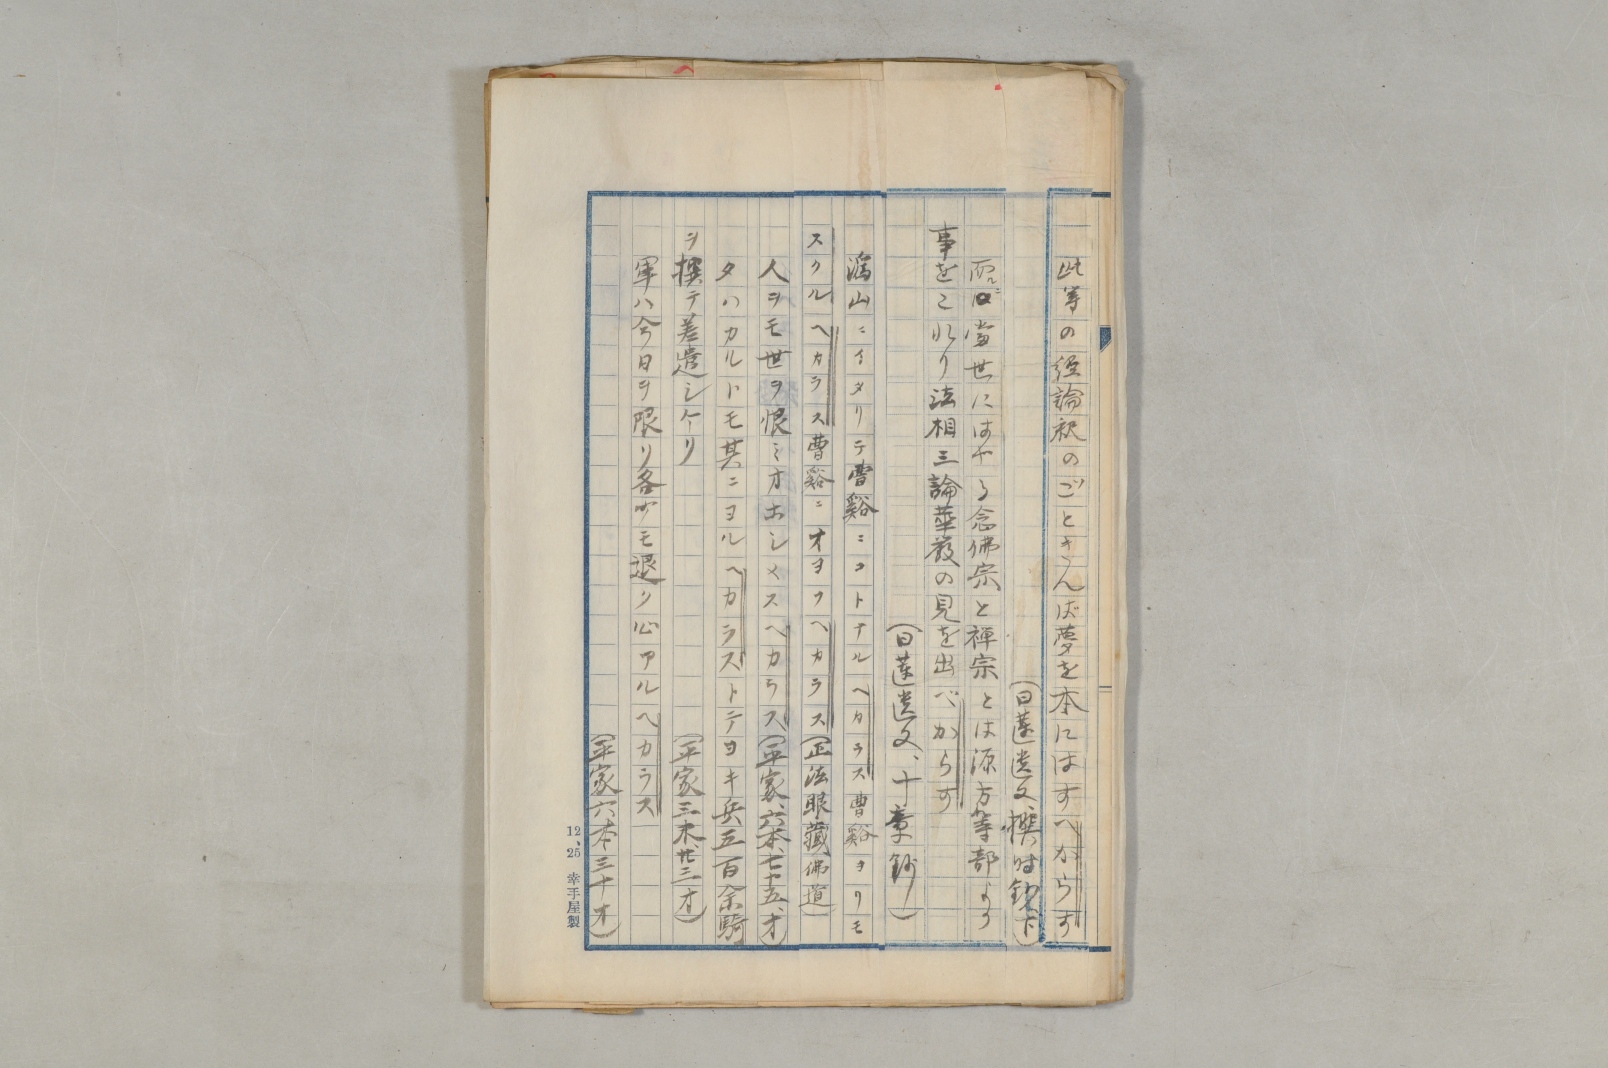 此等の経論釈のごときんば夢を本にはすべからず
(日蓮遺文、撰時鈔下)
而ルニ当世にはやる念佛宗と禅宗とは源方等部より
事をこれり法相三論華厳の見を出べからず
(日蓮遺文、十章鈔)
潙山ニイタリテ曹谿ニコトナルヘカラス曹谿ヨリモ
スクルヘカラス曹谿ニオヨフヘカラス(正法眼蔵佛道)
人ヲモ世ヲ恨ミオホシメスヘカラス(平家、六本、七十五、オ)
タハカルトモ其ニヨルヘカラストテヨキ兵五百余騎
ヲ撰テ差遣シケリ(平家三末、廿三オ)
軍ハ今日ヲ限リ各少モ退ク心アルヘカラス
(平家六本三十オ)
12、25 幸手屋製